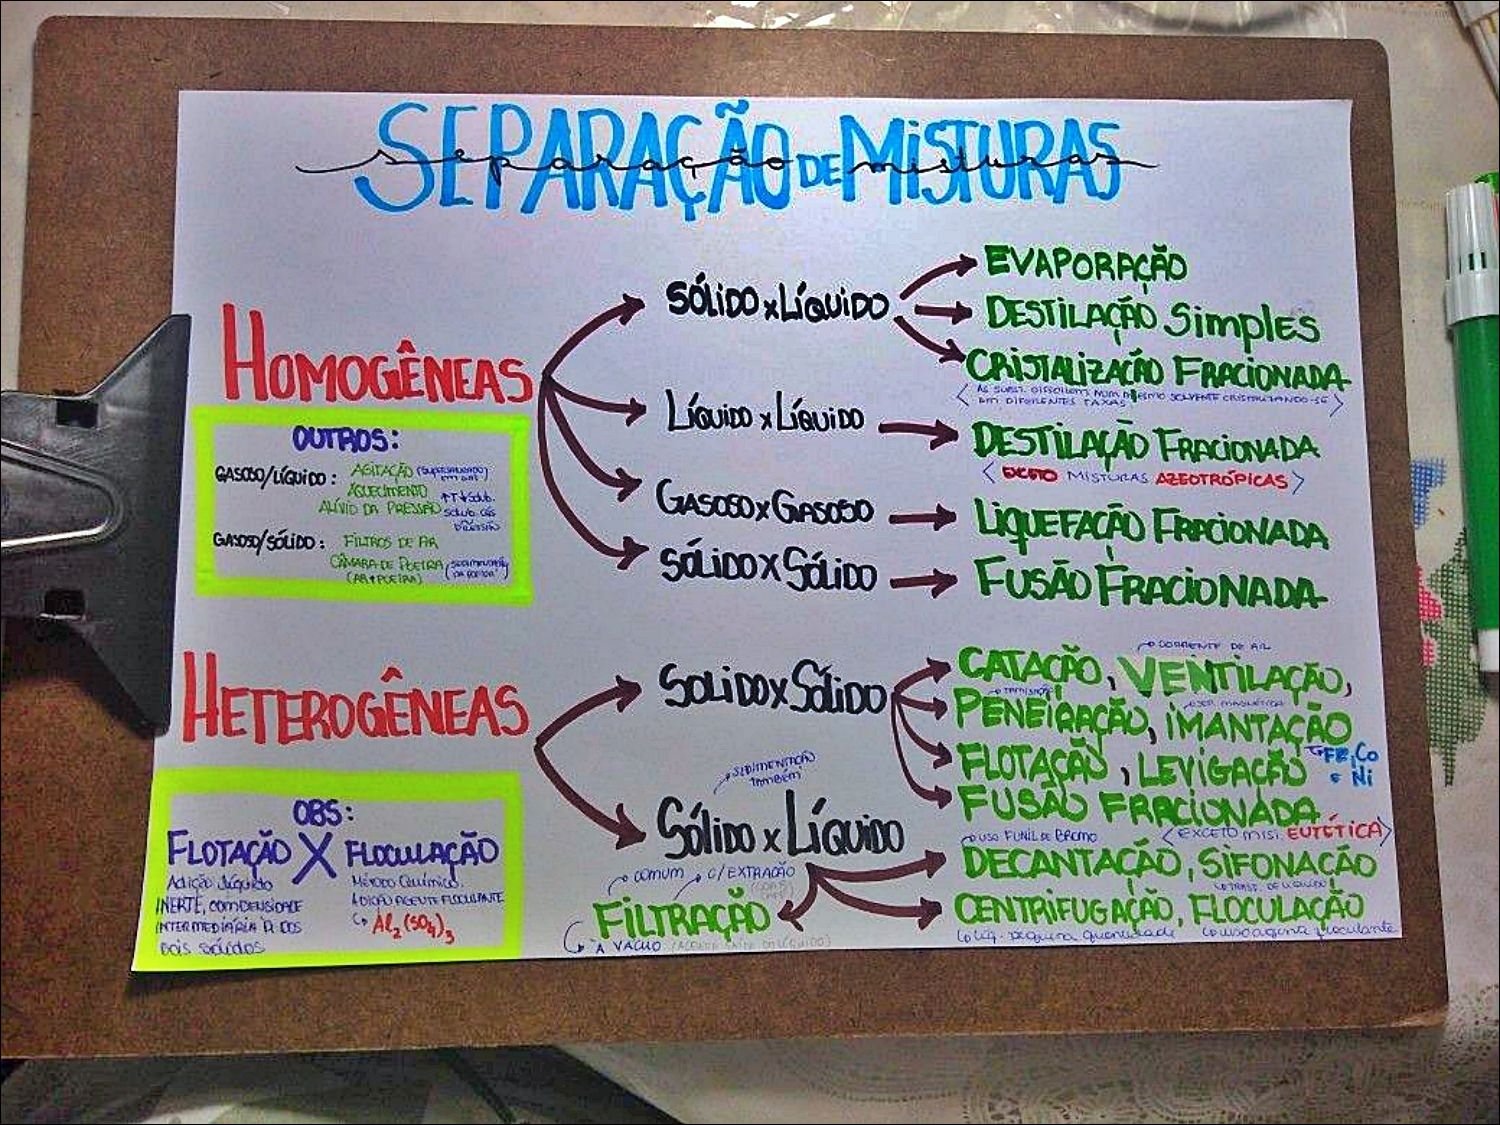 SEPARAÇÃO DE MISTURAS
separação de misturas
HOMOGÊNEAS
SÓLIDO x LÍQUIDO
EVAPORAÇÃO
DESTILAÇÃO SIMPLES
CRISTALIZAÇÃO FRACIONADA
AS SUBST. DISSOLVEM NUM MESMO SOLVENTE CRISTALIZANDO-SE
EM DIFERENTES TAXAS
LÍQUIDO x LÍQUIDO
DESTILAÇÃO FRACIONADA
< EXCETO MISTURAS AZEOTRÓPICAS >
GASOSO x GASOSO
LIQUEFAÇÃO FRACIONADA
SÓLIDO x SÓLIDO
FUSÃO FRACIONADA
OUTROS:
GASOSO/LÍQUIDO: AGITAÇÃO
AQUECIMENTO ↑T↓Solub.
ALÍVIO DA PRESSÃO Solub. gás
PRESSÃO
GASOSO/SÓLIDO: FILTROS DE AR
CÂMARA DE POEIRA (SEDIMENTAÇÃO
(AR+POEIRA) DA POEIRA)
HETEROGÊNEAS
SOLIDO x SÓLIDO
CORRENTE DE AR
CATAÇÃO, VENTILAÇÃO,
TAMISAÇÃO
PENEIRAÇÃO, IMANTAÇÃO
FLOTAÇÃO, LEVIGAÇÃO FE, Co
e Ni
FUSÃO FRACIONADA
< EXCETO MIST. EUTÉTICA >
SEDIMENTAÇÃO
TAMBÉM
SÓLIDO x LÍQUIDO
USO FUNIL DE BROMO
DECANTAÇÃO, SIFONAÇÃO
CENTRIFUGAÇÃO, FLOCULAÇÃO
LÍQ. pequena quantidade
uso agente floculante
COMUM C/EXTRAÇÃO
FILTRAÇÃO
A VÁCUO (ACELERA SAÍDA DO LÍQUIDO)
OBS:
FLOTAÇÃO X FLOCULAÇÃO
Adição líquido
INERTE, COM DENSIDADE
INTERMEDIÁRIA À DOS
dois sólidos
Método Químico.
ADIÇÃO AGENTE FLOCULANTE
Al₂(SO₄)₃